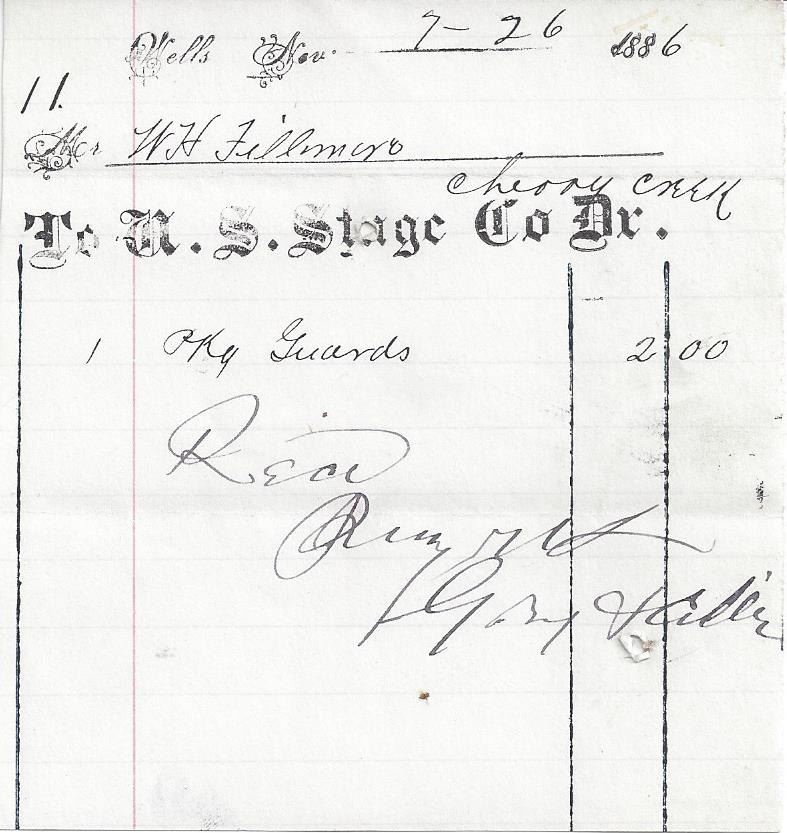 Wells Nev. 7-26 1886
11.
Mr W H Fillmore
Cherry Creek
To N. S. Stage Co Dr.
1 Pkg Guards 2 00
Recd
Payment